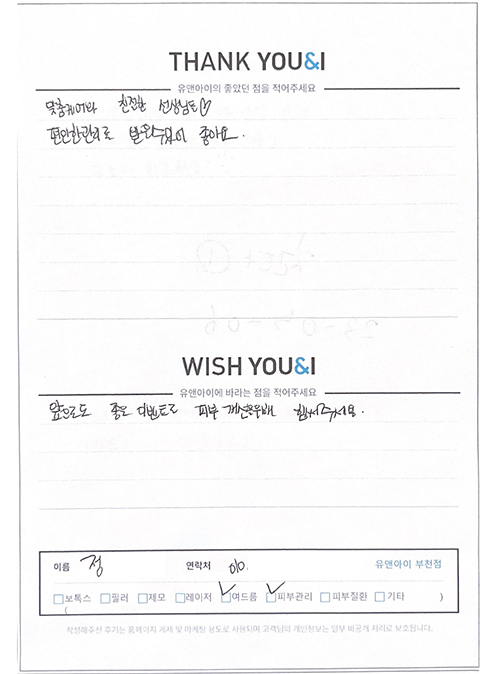 THANK YOU&I
유앤아이의 좋았던 점을 적어주세요
맞춤케어와 친절한 선생님들♡
편안한관리로 받을수있어 좋아요.
WISH YOU&I
유앤아이에 바라는 점을 적어주세요
앞으로도 좋은 이벤트로 피부 힘써주세요.
이름 정 연락처 010. 유앤아이 부천점
보톡스 필러 제모 레이저 여드름 피부관리 피부질환 기타
( )
작성해주신 후기는 홈페이지 게재 및 마케팅 용도로 사용되며 고객님의 개인정보는 일부 비공개 처리로 보호됩니다.